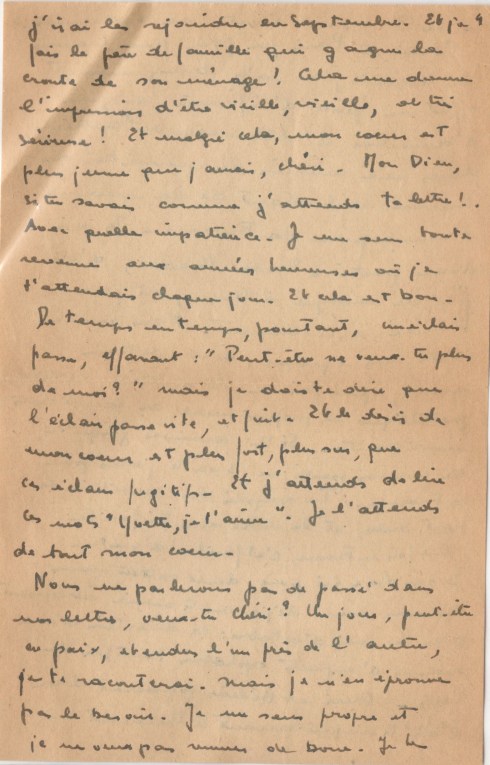 j'irai les rejoindre en Septembre. Et je
fais le père de famille qui gagne la
croute de son ménage! Cela me donne
l'impression d'être vieille, vieille, et très
sérieuse! Et malgré cela, mon coeur est
plus jeune que jamais, chéri. Mon Dieu,
si tu savais comme j'attends ta lettre!.
Avec quelle impatience. Je me sens toute
revenue aux années heureuses où je
t'attendais chaque jour. Et cela est bon.
De temps en temps, pourtant, un éclair
passe, effarant: "Peut-être ne veux-tu plus
de moi?" mais je dois te dire que
l'éclair passe vite, et fuit. Et le désir de
mon coeur est plus fort, plus sur, que
ces éclairs fugitifs. Et j'attends de lire
ces mots "Yvette, je t'aime". Je l'attends
de tout mon coeur.
Nous ne parlerons pas de passé dans
nos lettres, veux-tu chéri? Un jour, peut-être
en paix, étendus l'un près de l'autre,
je te raconterai. Mais je n'en éprouve
pas le besoin. Je me sens propre et
je ne veux pas remuer de boue. Je te